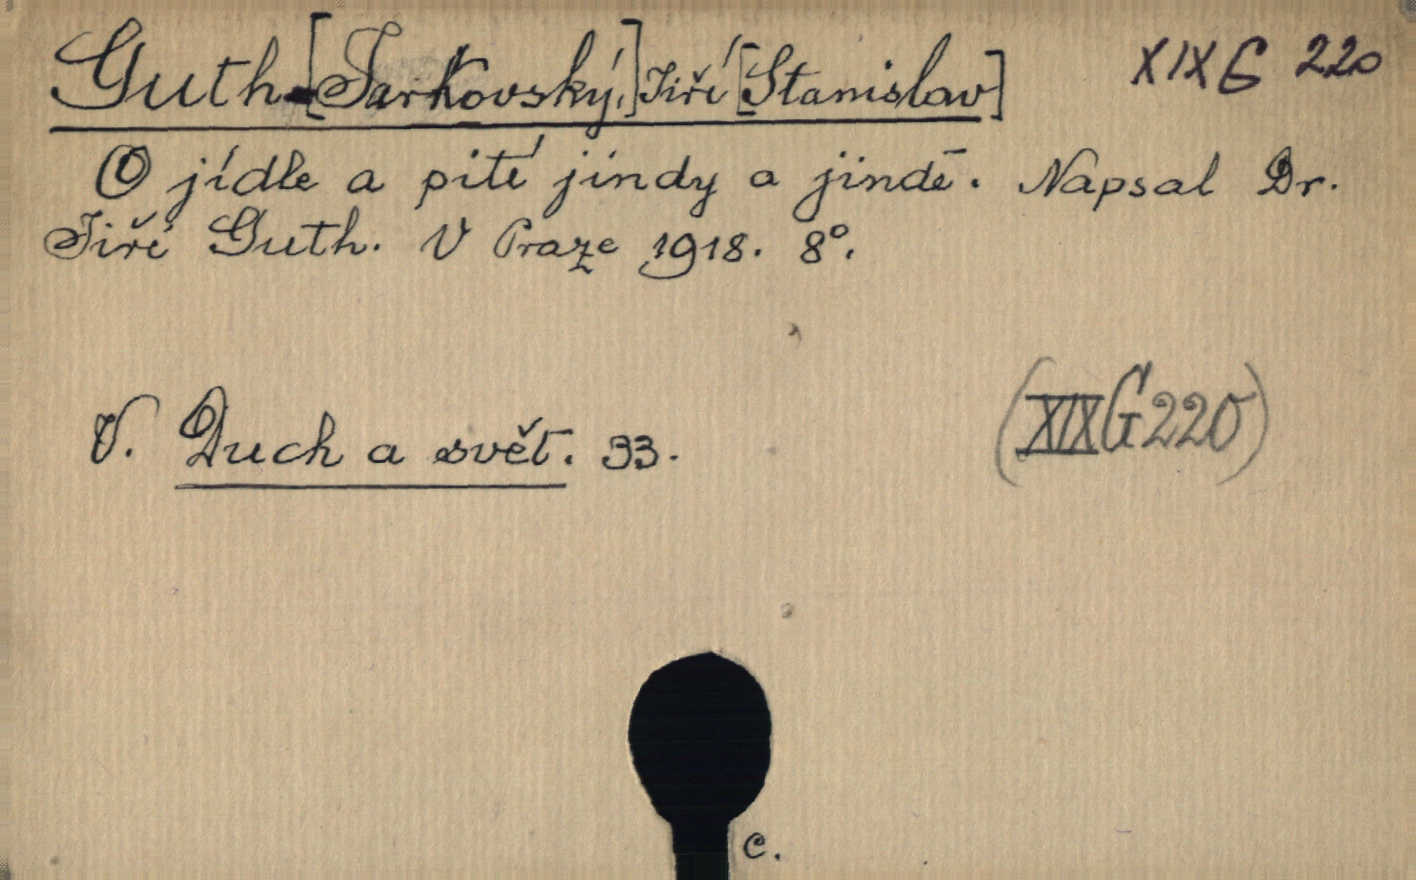 Guth-[Jarkovský,] Jiří [Stanislav] XIX G 220
O jídle a pití jindy a jinde. Napsal Dr.
Jiří Guth. V Praze 1918. 8°.
V. Duch a svět. 33. (XIX G 220)
c.